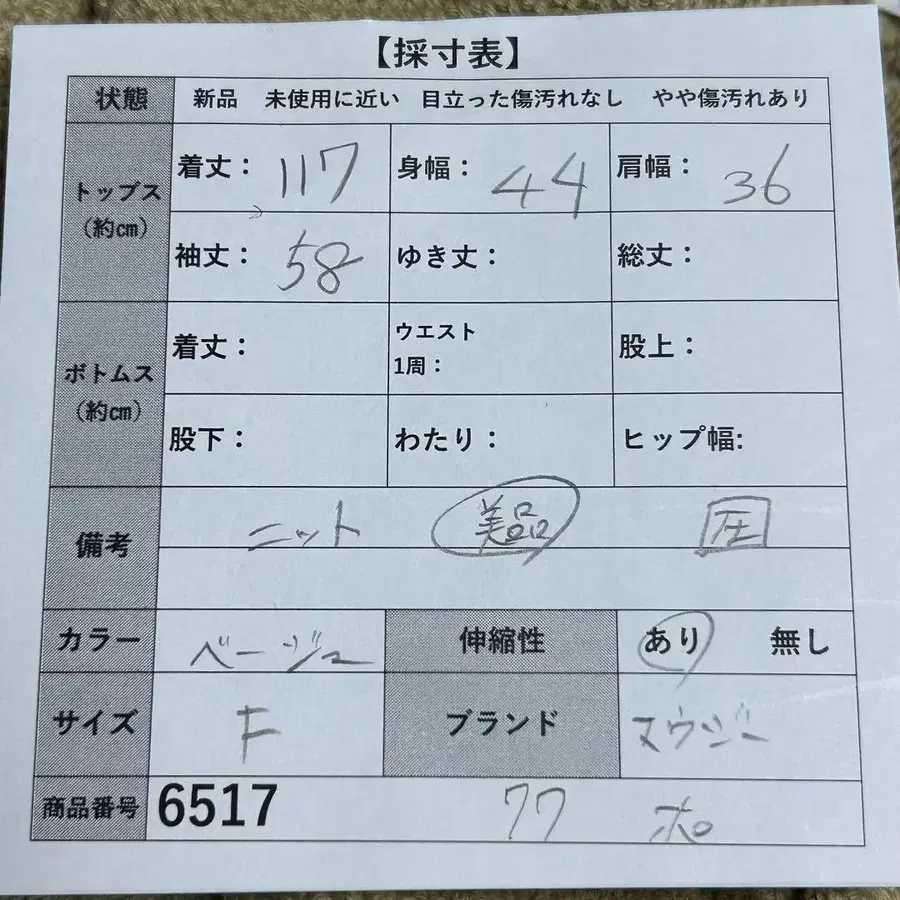 【採寸表】
状態 新品 未使用に近い 目立った傷汚れなし やや傷汚れあり
トップス(約㎝) 着丈：117 身幅：44 肩幅：36
袖丈：58 ゆき丈： 総丈：
ボトムス(約㎝) 着丈： ウエスト1周： 股上：
股下： わたり： ヒップ幅:
備考 ニット 美品 圧
カラー ベージュ 伸縮性 あり 無し
サイズ F ブランド マウジー
商品番号 6517 77 ポ